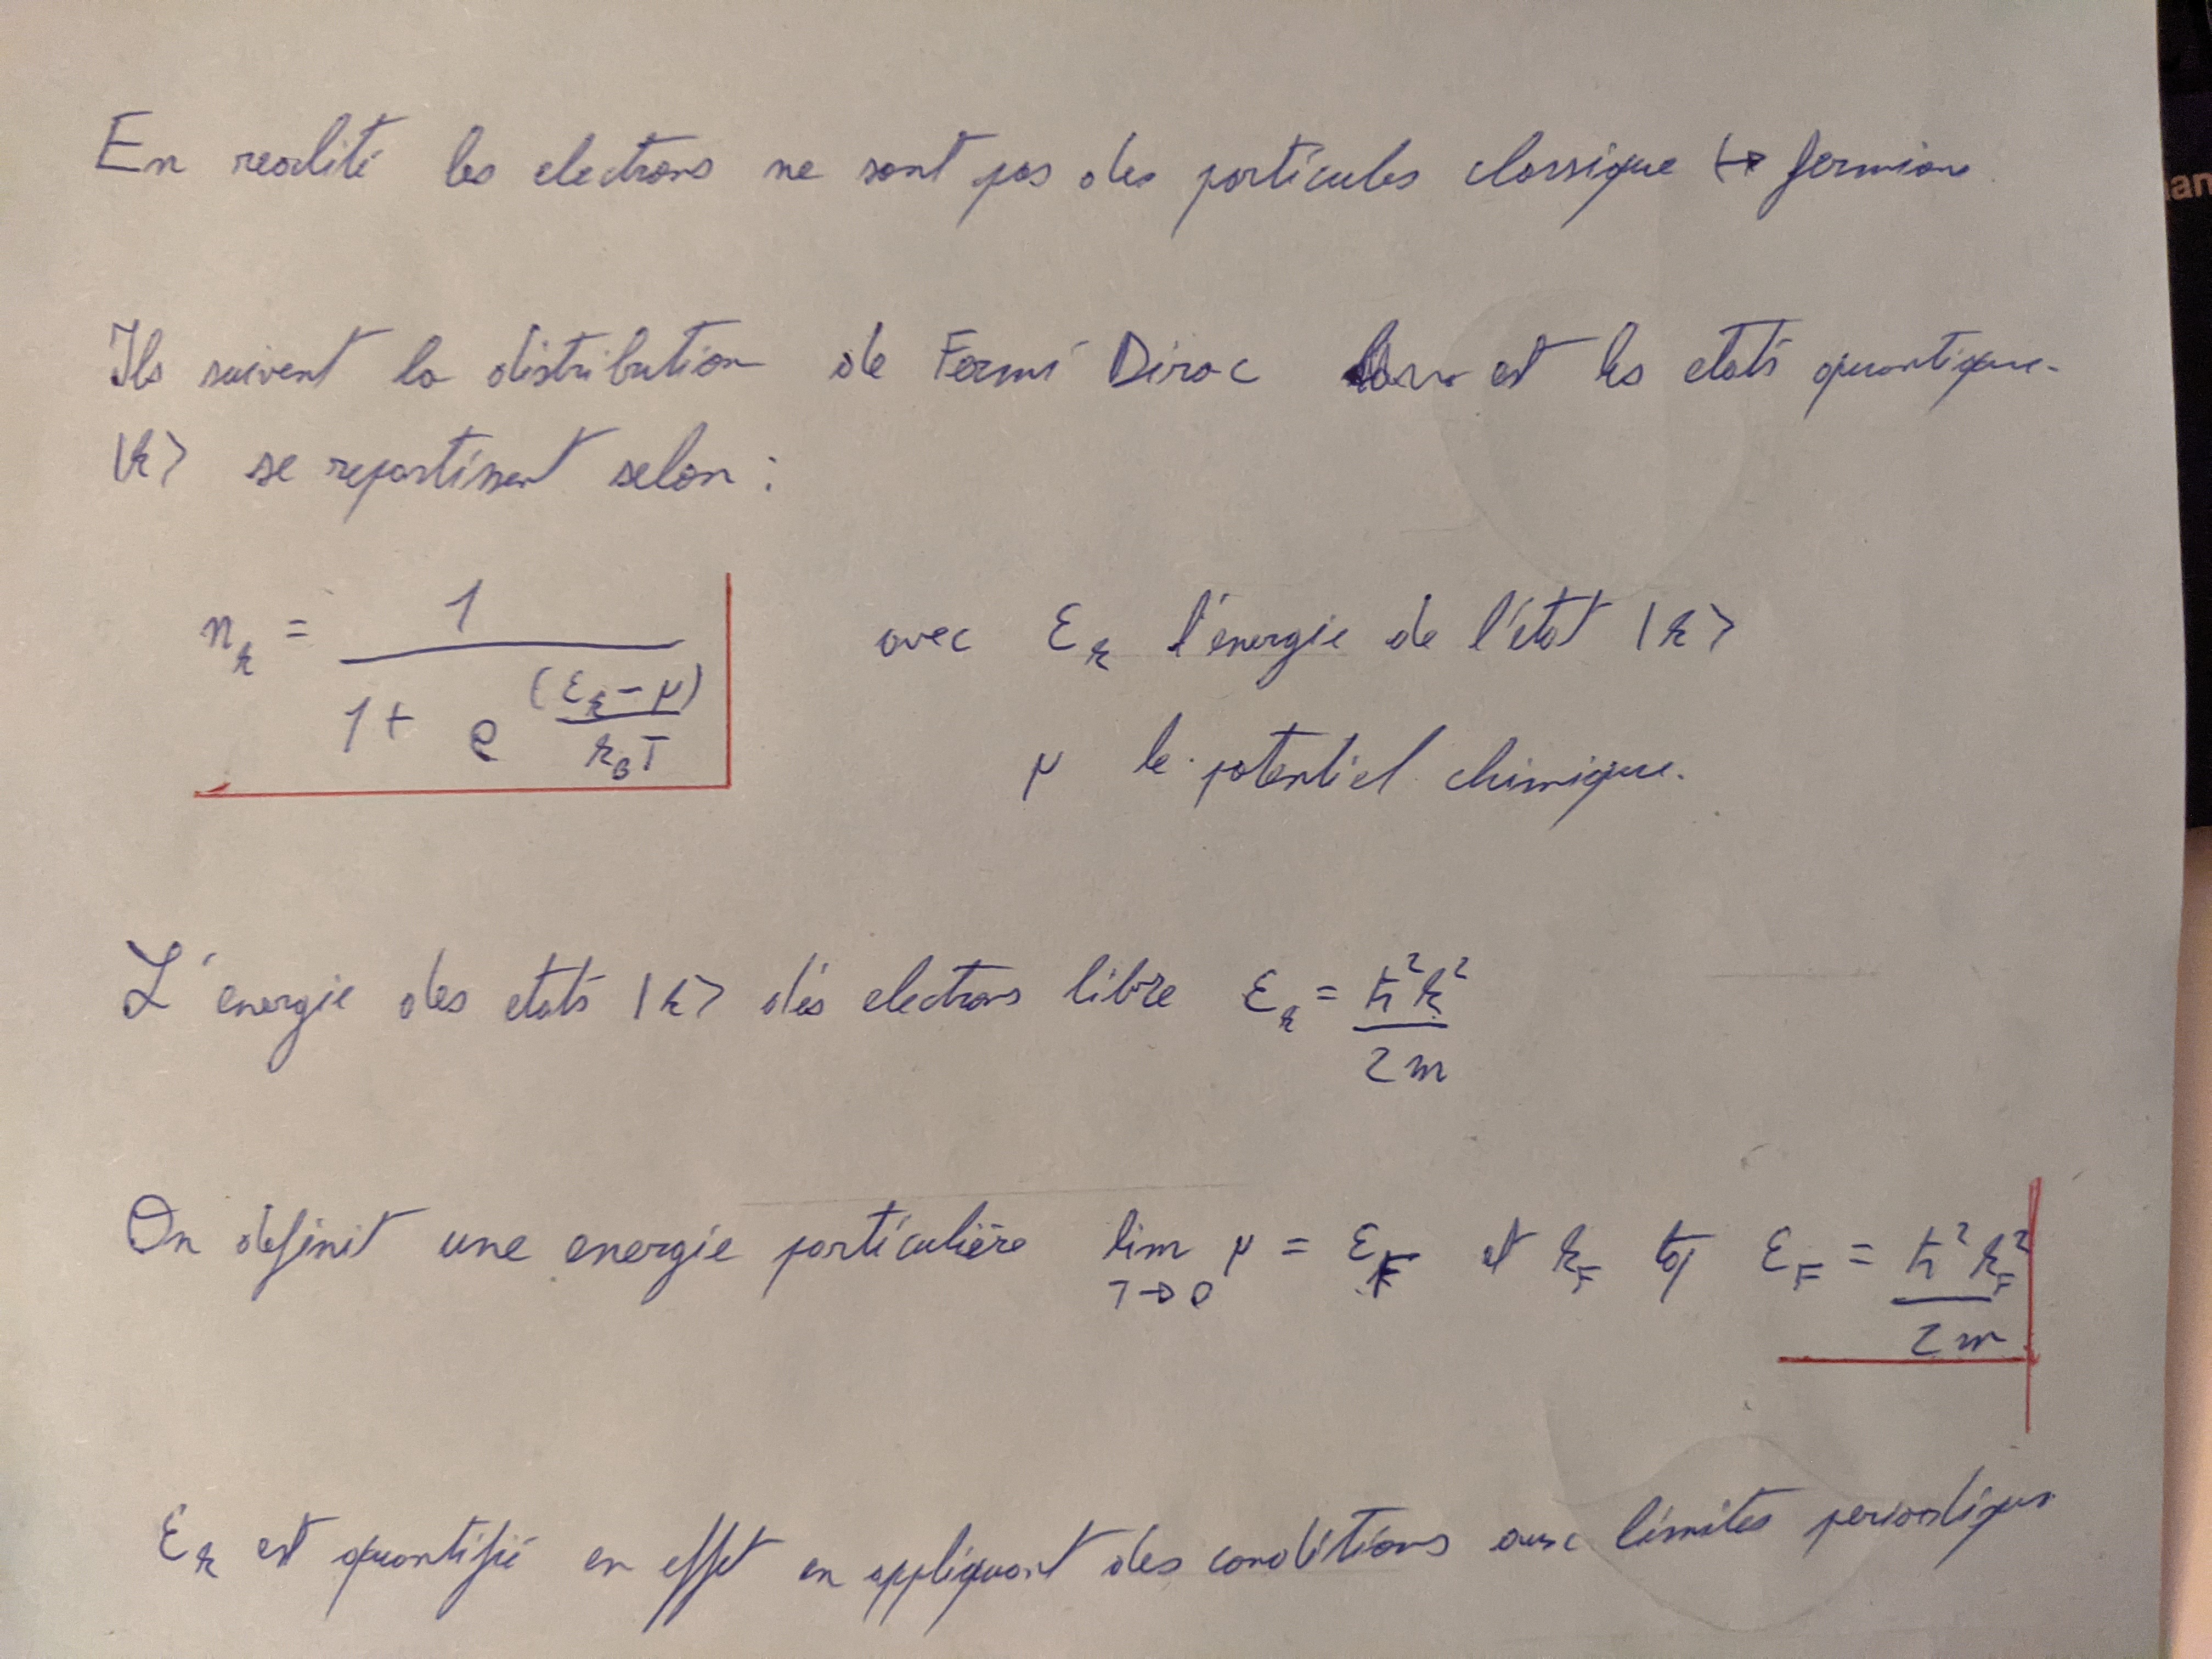 En realité les electrons ne sont pas des particules classique (→ fermion.
Ils suivent la distribution de Fermi Dirac est les etats quantique-
|k> se repartissent selon :
n_k = 1 / (1 + e^((ε_k - μ) / k_B T))
avec ε_k l'energie de l'état |k>
μ le potentiel chimique.
L'energie des etats |k> des electrons libre ε_k = ħ²k² / 2m
On definit une energie particulière lim_{T→0} μ = ε_F et k_F tq ε_F = ħ²k_F² / 2m
ε_k est quantifié en effet en appliquant des conditions aux limites periodiques
an